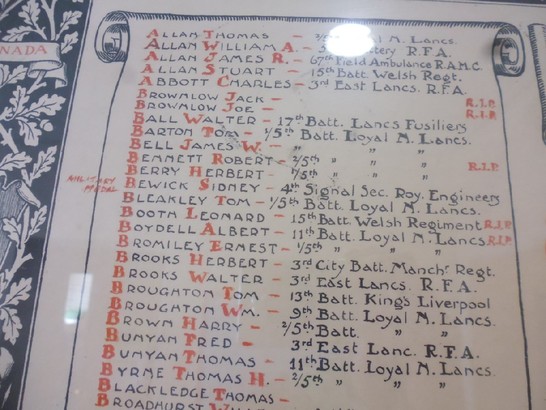 NADA
ALLAN THOMAS - Loyal N. Lancs.
ALLAN WILLIAM A. - Battery R.F.A.
ALLAN JAMES R. - 67th Field Ambulance R.A.M.C.
ALLAN STUART - 15th Batt. Welsh Regt.
ABBOTT CHARLES - 3rd East Lancs. R.F.A.
BROWNLOW JACK - R.I.P.
BROWNLOW JOE - R.I.P.
BALL WALTER - 17th Batt. Lancs Fusiliers
BARTON TOM - 1/5th Batt. Loyal N. Lancs.
BELL JAMES W. - " " "
BENNETT ROBERT - 2/5th " " " R.I.P.
BERRY HERBERT - 1/5th " " "
MILITARY MEDAL
BEWICK SIDNEY - 4th Signal Sec. Roy. Engineers
BLEAKLEY TOM - 1/5th Batt. Loyal N. Lancs.
BOOTH LEONARD - 15th Batt. Welsh Regiment R.I.P.
BOYDELL ALBERT - 11th Batt. Loyal N. Lancs R.I.P.
BROMILEY ERNEST - 1/5th " " "
BROOKS HERBERT - 3rd City Batt. Manchr Regt.
BROOKS WALTER - 3rd East Lancs. R.F.A.
BROUGHTON TOM - 13th Batt. King's Liverpool
BROUGHTON WM. - 9th Batt. Loyal N. Lancs.
BROWN HARRY - 2/5th Batt. " "
BUNYAN FRED - 3rd East Lanc. R.F.A.
BUNYAN THOMAS - 11th Batt. Loyal N. Lancs.
BYRNE THOMAS H. - 2/5th " " "
BLACKLEDGE THOMAS -
BROADHURST